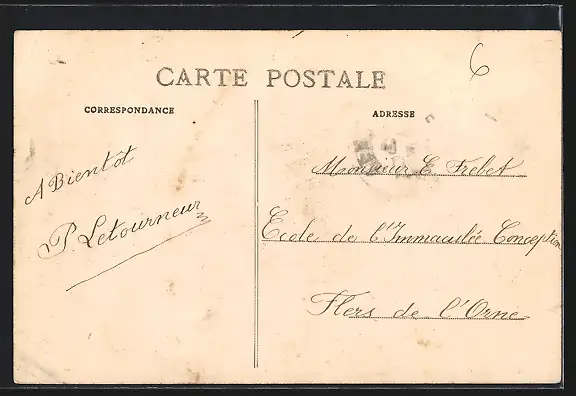 6
CARTE POSTALE
CORRESPONDANCE
A Bientôt
P. Letourneur
ADRESSE
Monsieur E. Frebet
Ecole de l'Immaculée Conception
Flers de l'Orne